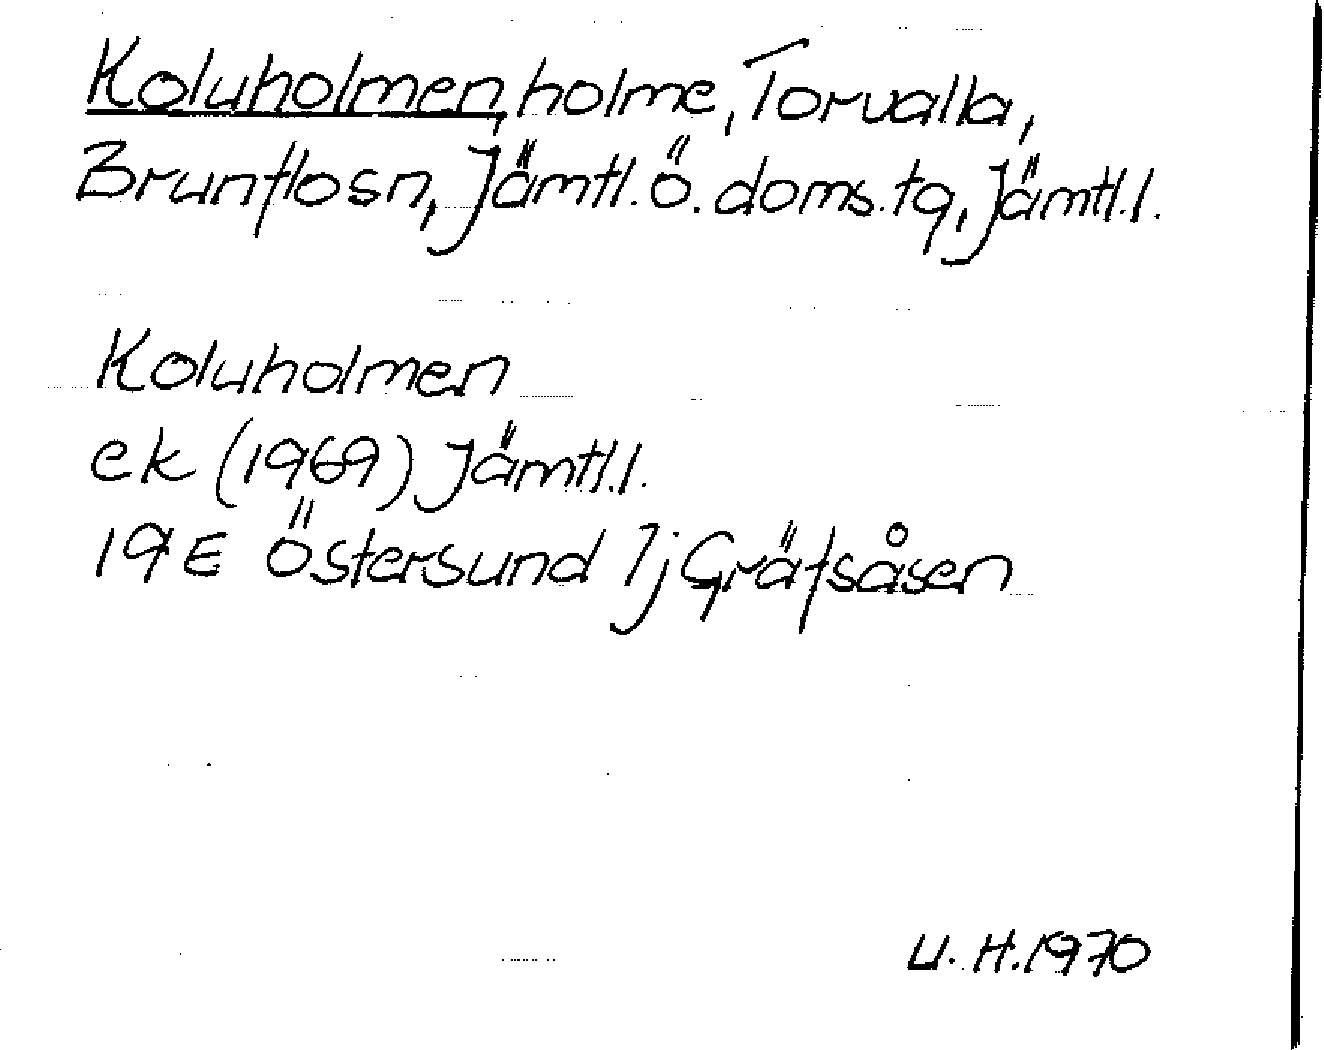 Koluholmen, holme, Torvalla,
Brunflo sn, Jämtl. Ö. doms. tg, Jämtl. l.
Koluholmen
ek (1969) Jämtl. l.
19E Östersund 7j Gräfsåsen
U. H. 1970